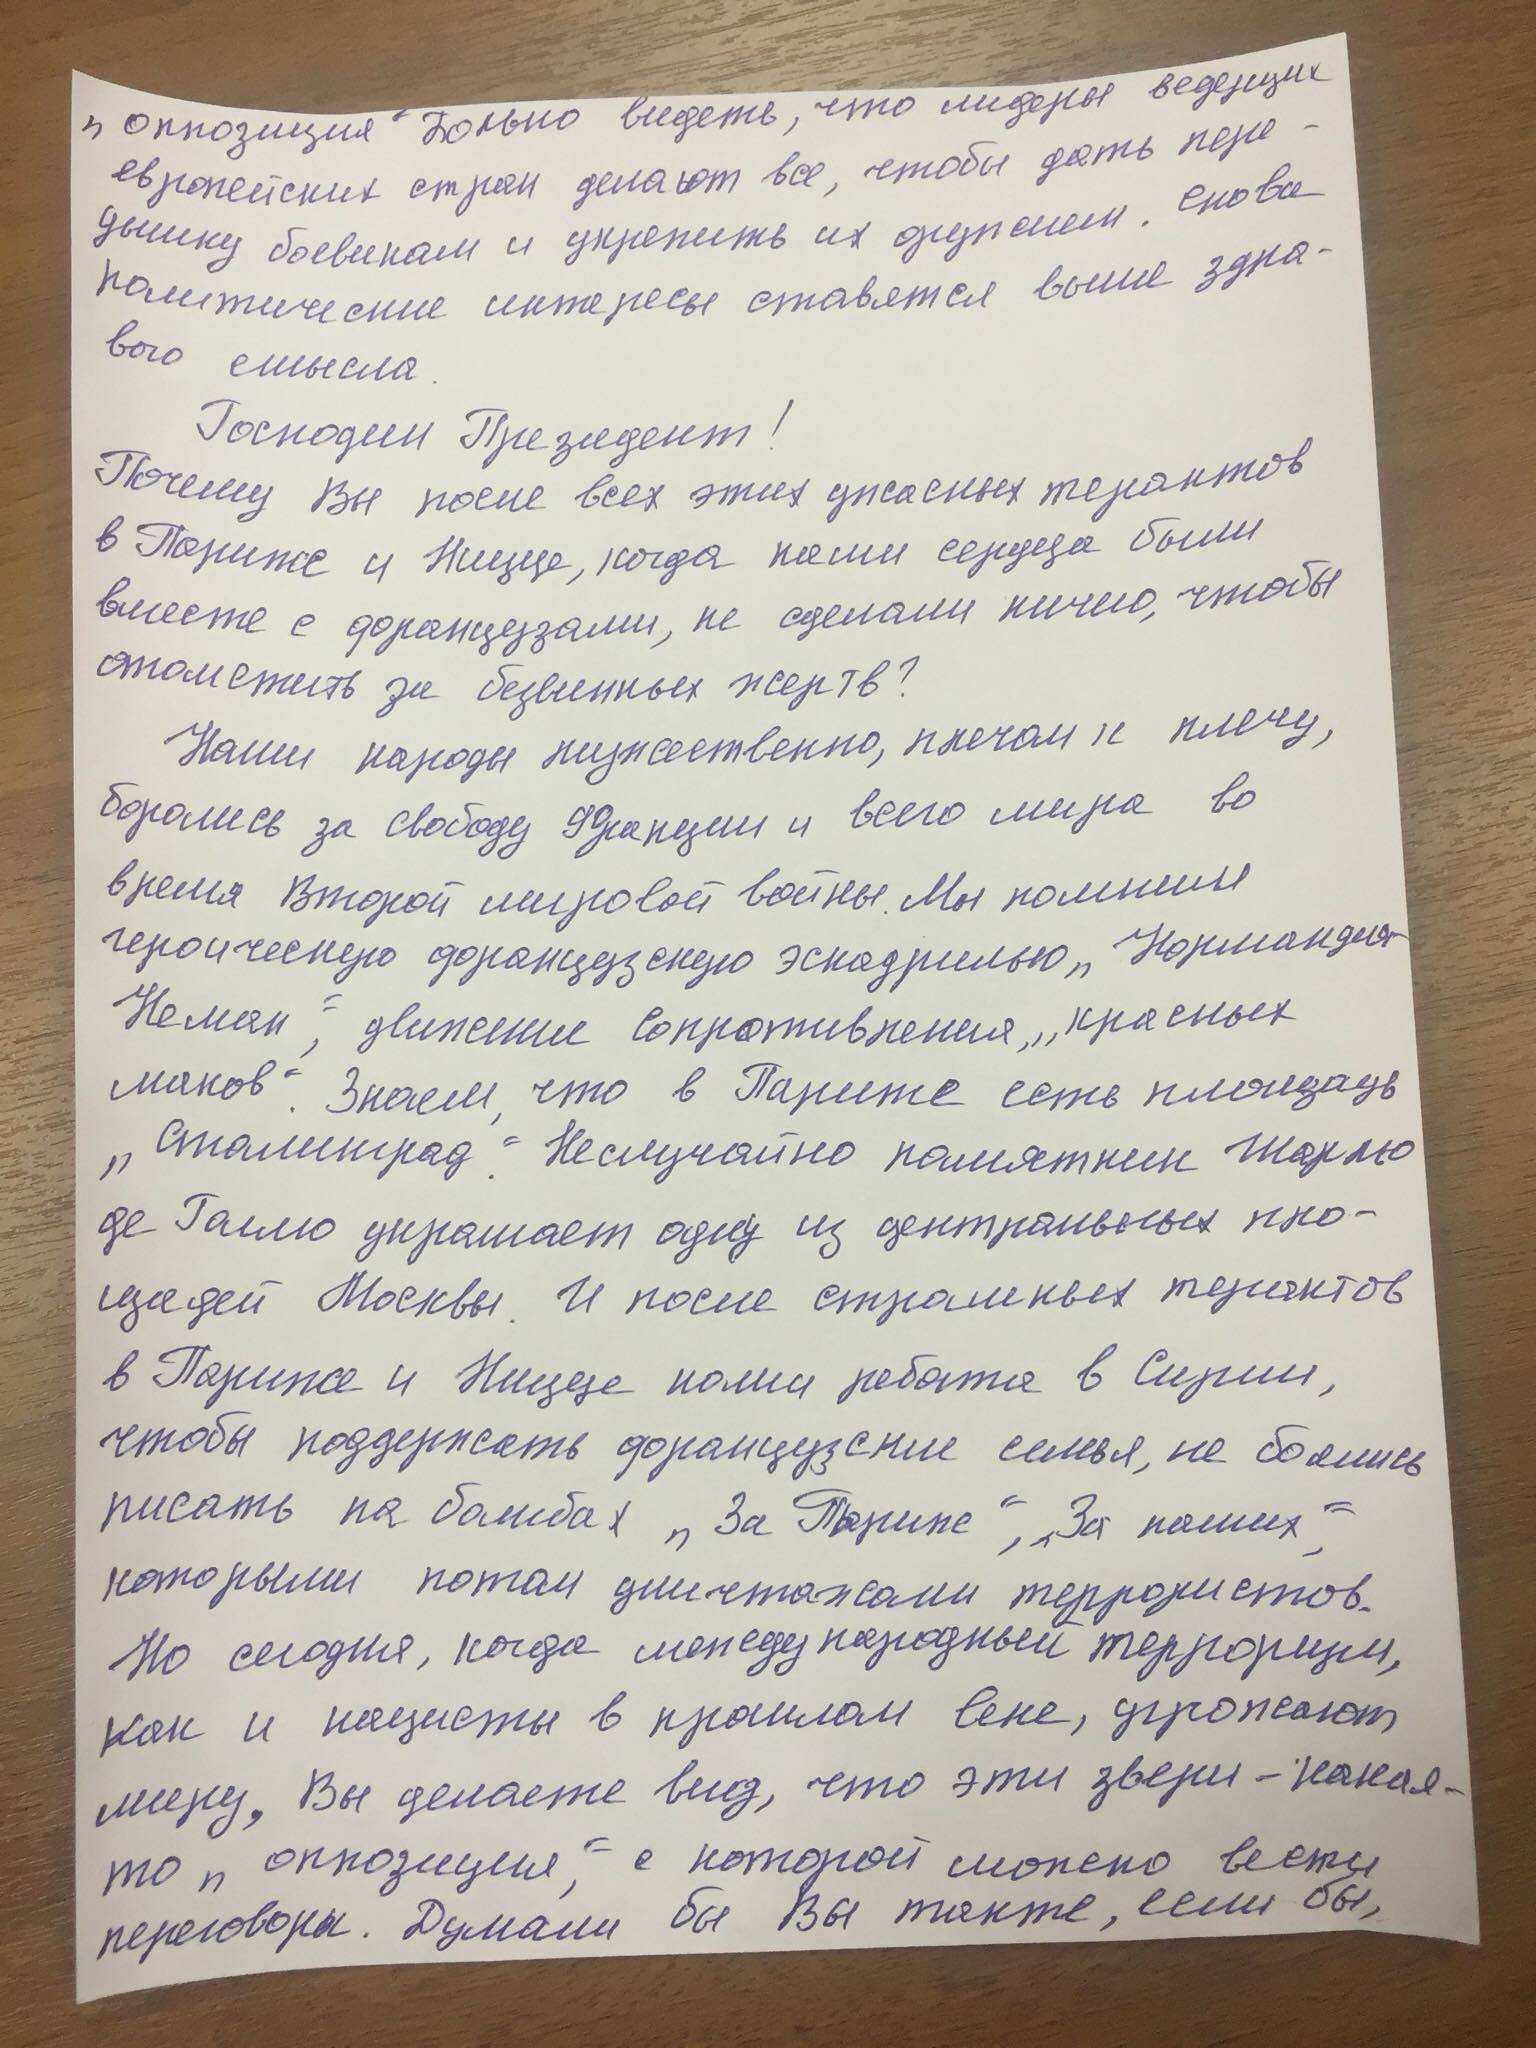 „оппозиция“ Больно видеть, что лидеры ведущих
европейских стран делают все, чтобы дать пере-
дышку боевикам и укрепить их оружием. Снова
политические интересы ставятся выше здра-
вого смысла.
Господин Президент!
Почему Вы после всех этих ужасных терактов
в Париже и Ницце, когда наши сердца были
вместе с французами, не сделали ничего, чтобы
отомстить за безвинных жертв?
Наши народы мужественно, плечом к плечу,
боролись за свободу Франции и всего мира во
время Второй мировой войны. Мы помним
героическую французскую эскадрилью „Нормандия-
Неман“, движение Сопротивления, „красных
маков“. Знаем, что в Париже есть площадь
„Сталинград“. Неслучайно памятник Шарлю
де Голлю украшает одну из центральных пло-
щадей Москвы. И после страшных терактов
в Париже и Ницце наши ребята в Сирии,
чтобы поддержать французские семья, не боялись
писать на бомбах „За Париж“, „За наших“,
которыми потом уничтожали террористов.
Но сегодня, когда международный терроризм,
как и нацисты в прошлом веке, угрожают
миру, Вы делаете вид, что эти звери – какая-
то „оппозиция“, с которой можно вести
переговоры. Думали бы Вы также, если бы,